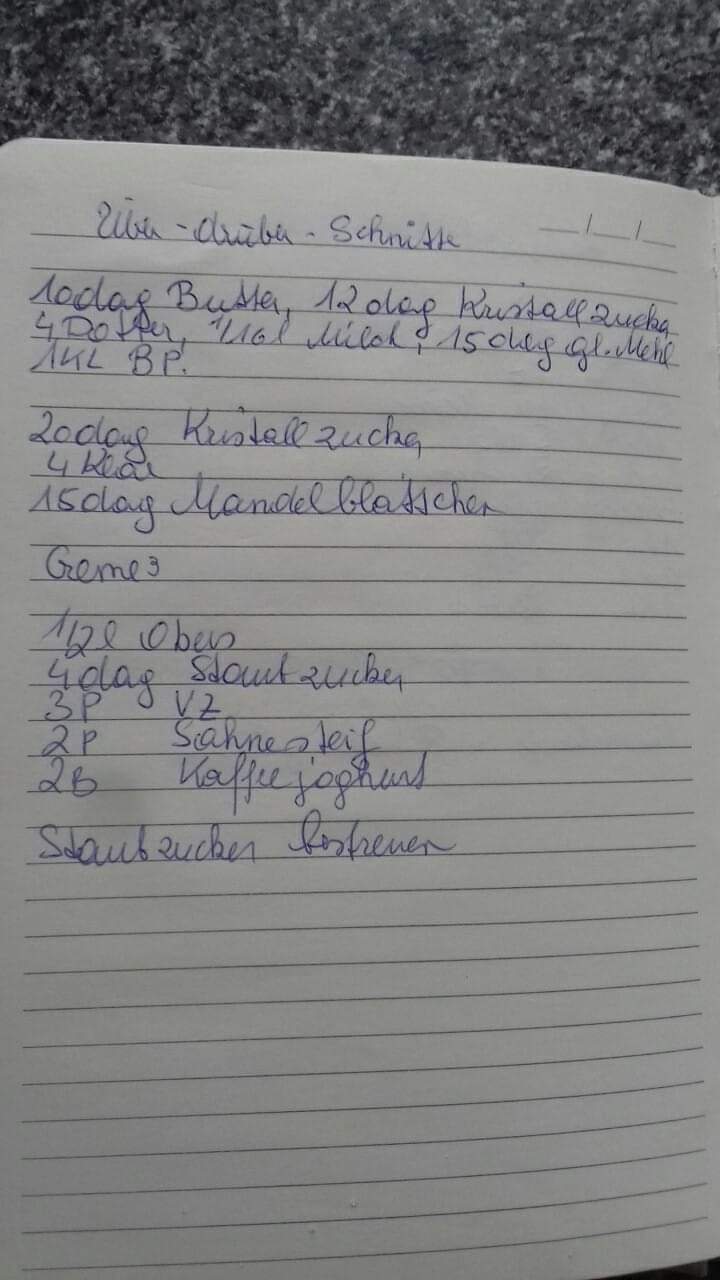 Über-drüber-Schnitte
10dag Butter, 12dag Kristallzucker
4 Dotter, 1/16l Milch, 15dag gl. Mehl
1KL BP.
20dag Kristallzucker
4 Klar
15dag Mandelblättchen
Creme:
1/2l Obers
4dag Staubzucker
3P VZ
2P Sahnesteif
2B Kaffeejoghurt
Staubzucker bestreuen